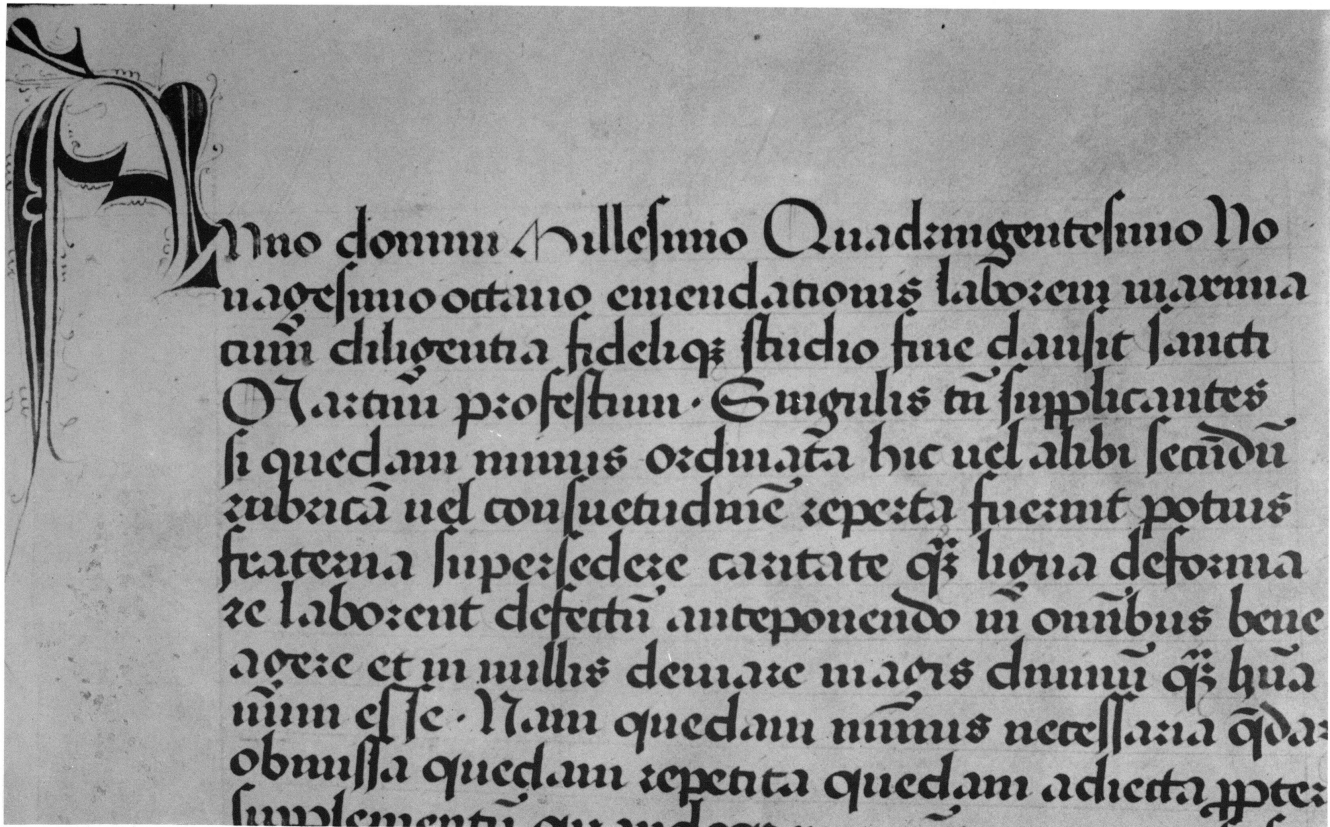 Anno domini Millesimo Quadringentesimo No
nagesimo octauo emendationis laborem maxima
cum̄ diligentia fideliqꝫ studio fine clausit sancti
Martini profestum · Singulis tn̄ supplicantes
si quedam minus ordinata hic uel alibi secūdū
rubricā uel consuetudinē reperta fuerint potius
fraterna supersedere caritate qꝫ ligna deforma
re laborent defectū anteponendo in om̄ibus bene
agere et in nullis deuiare magis diuinū qꝫ hūa
num esse · Nam quedam minus necessaria q̄dā
obmissa quedam repetita quedam adiecta ꝓpter
supplementū